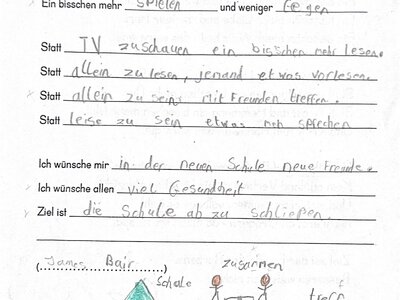 Ein bisschen mehr spielen und weniger
Statt TV zuschauen ein bisschen mehr lesen.
Statt allein zu lesen, jemand etwas vorlesen.
Statt allein zu sein, mit Freunden treffen.
Statt leise zu sein etwas meh sprechen
Ich wünsche mir in der neuen Schule neue Freunde.
Ich wünsche allen viel Gesundheit
Ziel ist die Schule ab zu schließen.
(James Bair)
Schule zusammen